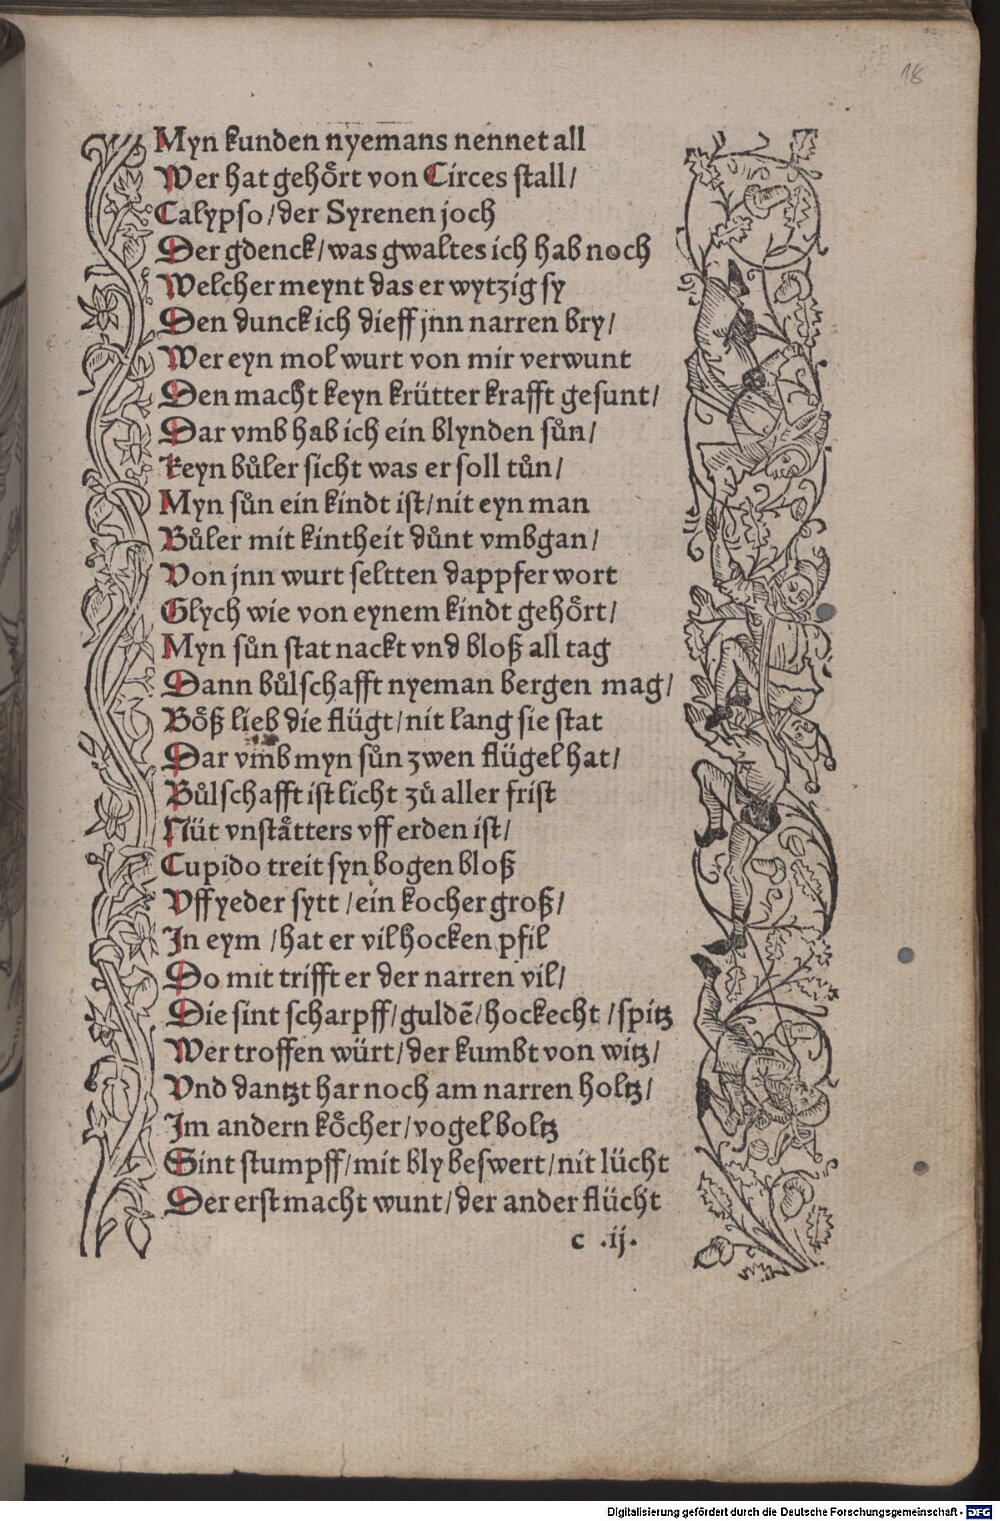 18
Myn kunden nyemans nennet all
Wer hat gehoͤrt von Circes stall/
Calypso/der Syrenen joch
Der gdenck/was gwaltes ich hab noch
Welcher meynt das er wytzig sy
Den dunck ich dieff jnn narren bry/
Wer eyn mol wurt von mir verwunt
Den macht keyn krütter krafft gesunt/
Dar vmb hab ich ein blynden suͦn/
keyn buͦler sicht was er soll tuͦn/
Myn suͦn ein kindt ist/nit eyn man
Buͦler mit kintheit duͦnt vmbgan/
Von jnn wurt seltten dappfer wort
Glych wie von eynem kindt gehoͤrt/
Myn suͦn stat nackt vnd bloß all tag
Dann buͦlschafft nyeman bergen mag/
Boͤß lieb die flügt/nit lang sie stat
Dar vmb myn suͦn zwen flügel hat/
Buͦlschafft ist licht zuͦ aller frist
Nüt vnstaͤtters vff erden ist/
Cupido treit syn bogen bloß
Vff yeder sytt/ein kocher groß/
In eym/hat er vil hocken pfil
Do mit trifft er der narren vil/
Die sint scharpff/guldẽ/hockecht/spitz
Wer troffen würt/der kumbt von witz/
Vnd dantzt har noch am narren holtz/
Im andern koͤcher/vogel boltz
Sint stumpff/mit bly beswert/nit lücht
Der erst macht wunt/der ander flücht
c .ij.
Digitalisierung gefördert durch die Deutsche Forschungsgemeinschaft - DFG